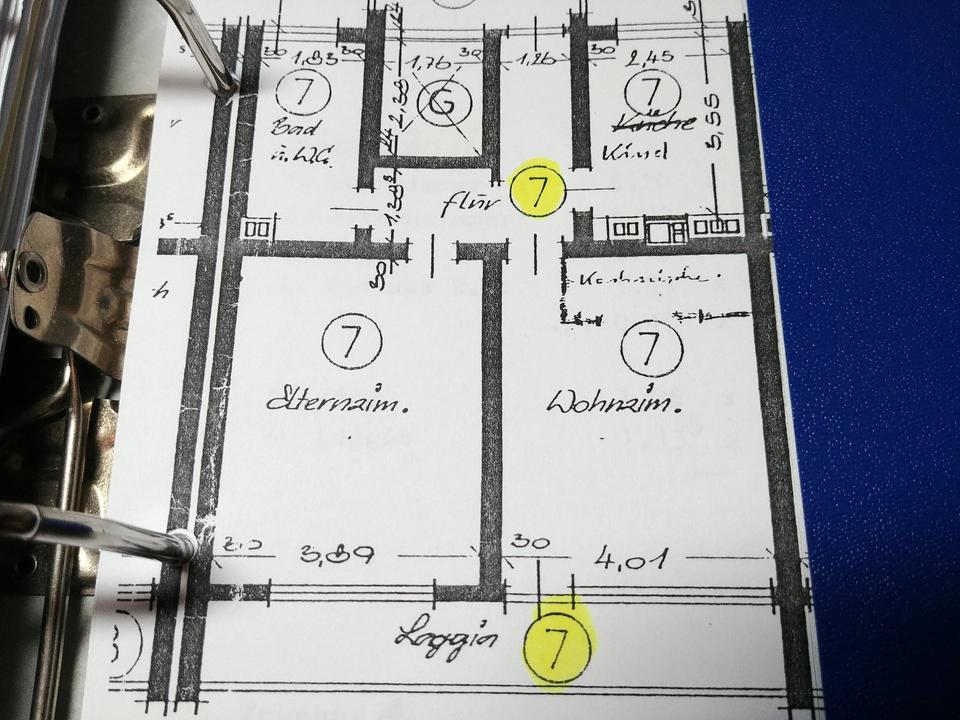 30 1,83 30 1,76 30 1,26 30 2,45
7 G 7
Bad
u. W.C.
Küche
Kind
5,55
flur 7
30
Kochnische.
7 7
Elternzim. Wohnzim.
3,89 30 4,01
Loggia 7